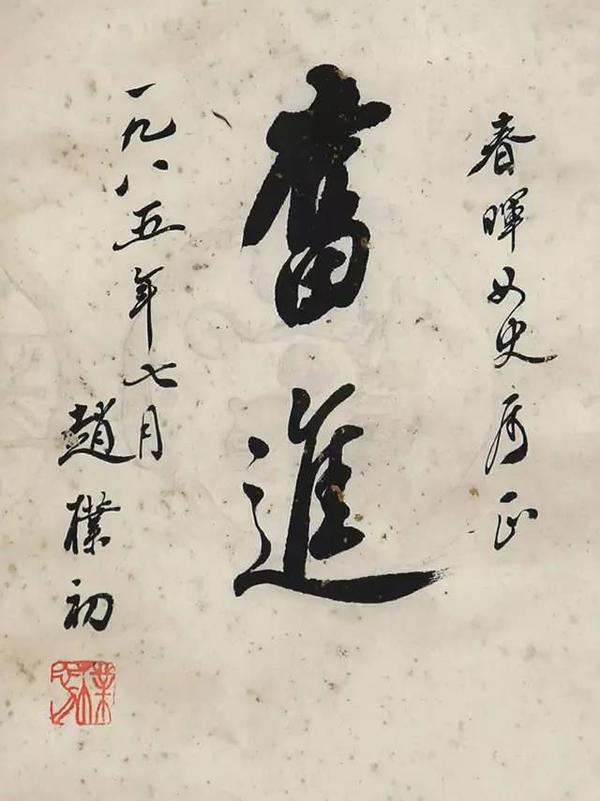 春暉女史属正
奮進
一九八五年七月
趙樸初